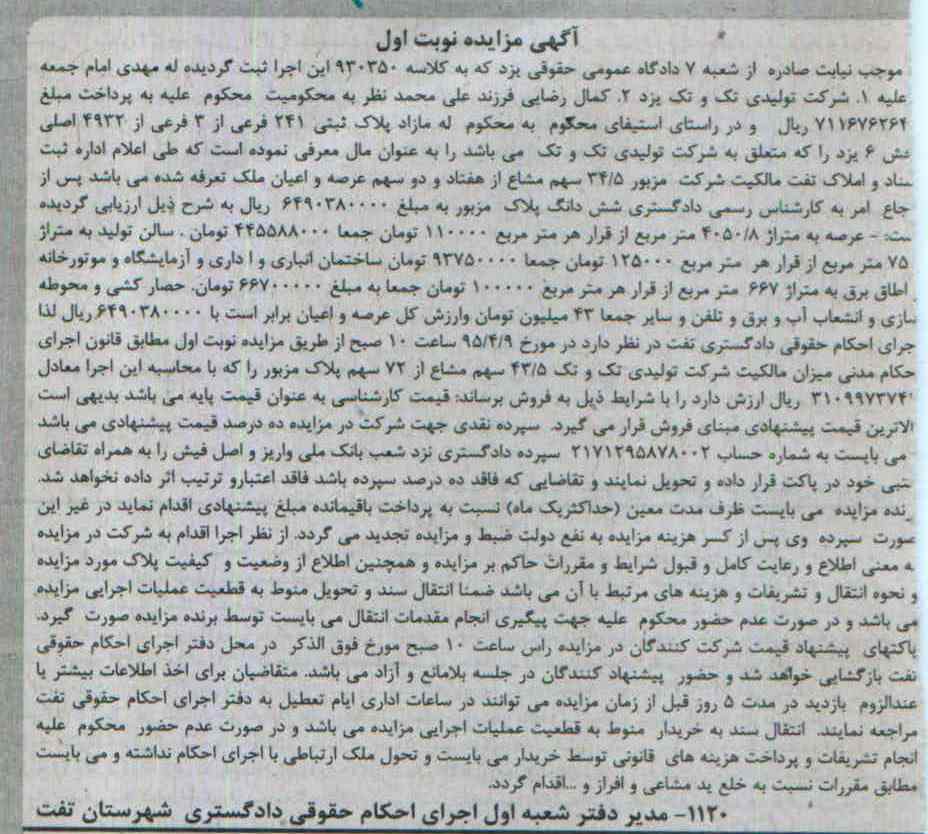 آگهی مزایده نوبت اول
موجب نیابت صادره از شعبه ۷ دادگاه عمومی حقوقی یزد که به کلاسه ۹۳۰۳۵۰ این اجرا ثبت گردیده له مهدی امام جمعه
علیه ۱. شرکت تولیدی تک و تک یزد ۲. کمال رضایی فرزند علی محمد نظر به محکومیت محکوم علیه به پرداخت مبلغ
۷۱۱۶۷۶۲۶۴ ریال و در راستای استیفای محکوم به محکوم له مازاد پلاک ثبتی ۲۴۱ فرعی از ۳ فرعی از ۴۹۳۲ اصلی
خش ۶ یزد را که متعلق به شرکت تولیدی تک و تک می باشد را به عنوان مال معرفی نموده است که طی اعلام اداره ثبت
سناد و املاک تفت مالکیت شرکت مزبور ۳۴/۵ سهم مشاع از هفتاد و دو سهم عرصه و اعیان ملک تعرفه شده می باشد پس از
جاع امر به کارشناس رسمی دادگستری شش دانگ پلاک مزبور به مبلغ ۶۴۹۰۳۸۰۰۰۰ ریال به شرح ذیل ارزیابی گردیده
ست: - عرصه به متراژ ۴۰۵۰/۸ متر مربع از قرار هر متر مربع ۱۱۰۰۰۰ تومان جمعا ۴۴۵۵۸۸۰۰۰ تومان . سالن تولید به متراژ
۷۵ متر مربع از قرار هر متر مربع ۱۲۵۰۰۰ تومان جمعا ۹۳۷۵۰۰۰۰ تومان ساختمان انباری و ا داری و آزمایشگاه و موتورخانه
اطاق برق به متراژ ۶۶۷ متر مربع از قرار هر متر مربع ۱۰۰۰۰۰ تومان جمعا به مبلغ ۶۶۷۰۰۰۰۰ تومان. حصار کشی و محوطه
سازی و انشعاب آب و برق و تلفن و سایر جمعا ۴۳ میلیون تومان وارزش کل عرصه و اعیان برابر است با ۶۴۹۰۳۸۰۰۰۰ریال لذا
جرای احکام حقوقی دادگستری تفت در نظر دارد در مورخ ۹۵/۴/۹ ساعت ۱۰ صبح از طریق مزایده نوبت اول مطابق قانون اجرای
حکام مدنی میزان مالکیت شرکت تولیدی تک و تک ۴۳/۵ سهم مشاع از ۷۲ سهم پلاک مزبور را که با محاسبه این اجرا معادل
۳۱۰۹۹۷۳۷۴ ریال ارزش دارد را با شرایط ذیل به فروش برساند: قیمت کارشناسی به عنوان قیمت پایه می باشد بدیهی است
الاترین قیمت پیشنهادی مبنای فروش قرار می گیرد. سپرده نقدی جهت شرکت در مزایده ده درصد قیمت پیشنهادی می باشد
می بایست به شماره حساب ۲۱۷۱۲۹۵۸۷۸۰۰۲ سپرده دادگستری نزد شعب بانک ملی واریز و اصل فیش را به همراه تقاضای
تبی خود در پاکت قرار داده و تحویل نمایند و تقاضایی که فاقد ده درصد سپرده باشد فاقد اعتبارو ترتیب اثر داده نخواهد شد.
رنده مزایده می بایست ظرف مدت معین (حداکثریک ماه) نسبت به پرداخت باقیمانده مبلغ پیشنهادی اقدام نماید در غیر این
صورت سپرده وی پس از کسر هزینه مزایده به نفع دولت ضبط و مزایده تجدید می گردد. از نظر اجرا اقدام به شرکت در مزایده
به معنی اطلاع و رعایت کامل و قبول شرایط و مقررات حاکم بر مزایده و همچنین اطلاع از وضعیت و کیفیت پلاک مورد مزایده
و نحوه انتقال و تشریفات و هزینه های مرتبط با آن می باشد ضمنا انتقال سند و تحویل منوط به قطعیت عملیات اجرایی مزایده
می باشد و در صورت عدم حضور محکوم علیه جهت پیگیری انجام مقدمات انتقال می بایست توسط برنده مزایده صورت گیرد.
پاکتهای پیشنهاد قیمت شرکت کنندگان در مزایده راس ساعت ۱۰ صبح مورخ فوق الذکر در محل دفتر اجرای احکام حقوقی
تفت بازگشایی خواهد شد و حضور پیشنهاد کنندگان در جلسه بلامانع و آزاد می باشد. متقاضیان برای اخذ اطلاعات بیشتر یا
عندالزوم بازدید در مدت ۵ روز قبل از زمان مزایده می توانند در ساعات اداری ایام تعطیل به دفتر اجرای احکام حقوقی تفت
مراجعه نمایند. انتقال سند به خریدار منوط به قطعیت عملیات اجرایی مزایده می باشد و در صورت عدم حضور محکوم علیه
انجام تشریفات و پرداخت هزینه های قانونی توسط خریدار می بایست و تحول ملک ارتباطی با اجرای احکام نداشته و می بایست
مطابق مقررات نسبت به خلع ید مشاعی و افراز و ...اقدام گردد.
۱۱۲۰- مدیر دفتر شعبه اول اجرای احکام حقوقی دادگستری شهرستان تفت